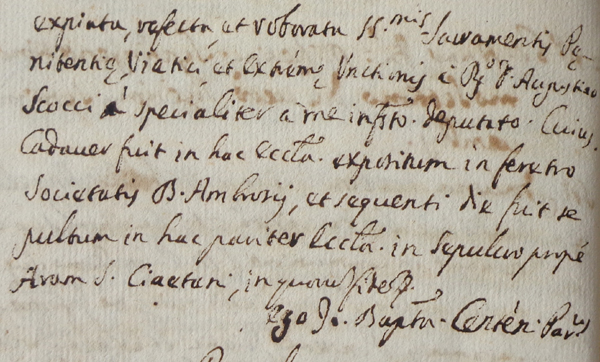 expiata, refecta, et roborata SS.mis Sacramentis Pę
nitentię, Viatici, et extremę Unctionis à P. F. Augustino
Scocci à specialiter à me infrto. deputato. Cuius
Cadaver fuit in hac eccła. expositum in feretro
Societatis B. Ambrosij, et sequenti die fuit se
pultum in hac pariter Eccła. in sepulcro propé
Aram S. Ciaetani, in quorum fide
Ego Jo. Bapta. Centén. Par.s